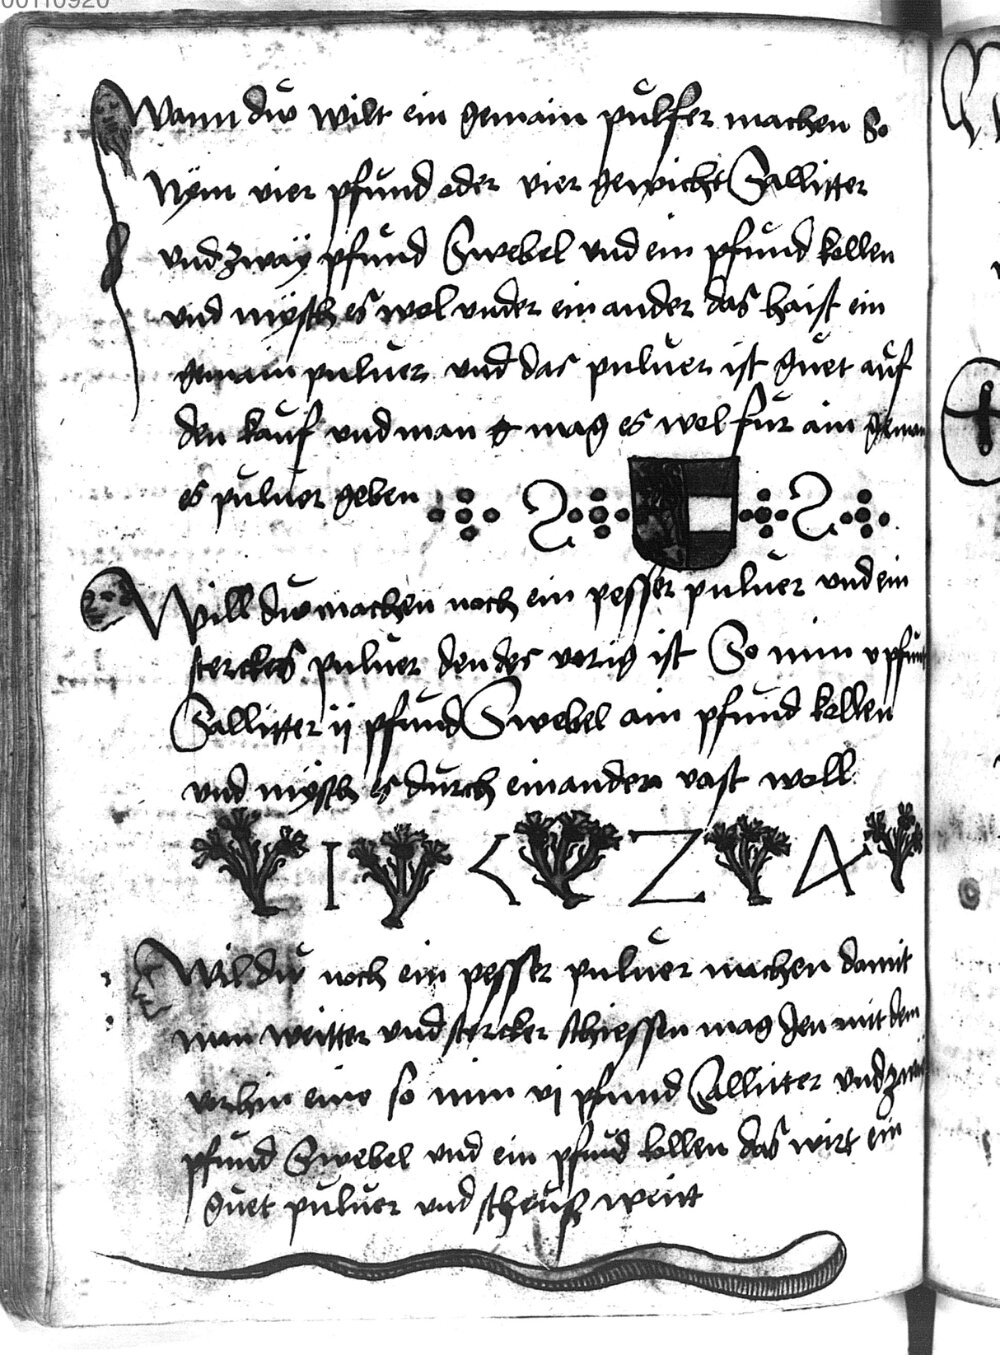 00110920
Wann dw wilt ein gemain pulfer machen So
Nym vier pfund oder vier gewicht Sallitter
und zway pfund Swebel und ein pfund kollen
und mysch es wol under ein ander das haist ein
gemain puluer und das puluer ist guet auf
den kauf und man mag es wol fur ain gemain
es puluer geben
Will dw machen noch ein pesser puluer und ein
sterckers puluer den des vorig ist So nim v pfund
Sallitter ij pfund Swebel ain pfund kollen
und mysch es durch einander vast woll
I < Z A
Wil dw noch ein pesser puluer machen damit
man weitter und stercker schiessen mag den mit dem
vorhin eine so nim vj pfund Sallitter und zwai
pfund Swebel und ein pfund kollen das wirt ein
guet puluer und scheust weitt